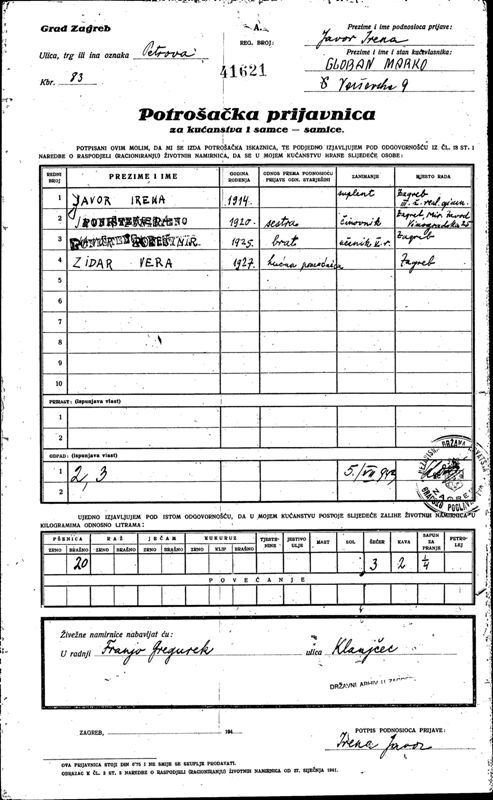 Grad Zagreb
Ulica, trg ili ina oznaka Petrova
Kbr. 83
A.
REG. BROJ:
41621
Prezime i ime podnosioca prijave:
Javor Irena
Prezime i ime i stan kućevlasnika:
GLOBAN MARKO
9
Potrošačka prijavnica
za kućanstva i samce — samice.
POTPISANI OVIM MOLIM, DA MI SE IZDA POTROŠAČKA ISKAZNICA, TE PODJEDNO IZJAVLJUJEM POD ODGOVORNOŠĆU IZ ČL. 18 ST. 1
NAREDBE O RASPODJELI (RACIONIRANJU) ŽIVOTNIH NAMIRNICA, DA SE U MOJEM KUĆANSTVU HRANE SLIJEDEĆE OSOBE:
REDNI BROJ PREZIME I IME GODINA ROĐENJA ODNOS PREMA PODNOSIOCU PRIJAVE ODN. STARJEŠINI ZANIMANJE MJESTO RADA
1 JAVOR IRENA 1914. suplent Zagreb
2 1920. sestra činovnik Zagreb
3 1925. brat učenik Zagreb
4 ZIDAR VERA 1927. kućna pomoćnica Zagreb
5
6
7
8
9
10
PRIRAST: (ispunjava vlast)
1
2
OTPAD: (ispunjava vlast)
1 2, 3 5./VII
2
UJEDNO IZJAVLJUJEM POD ISTOM ODGOVORNOŠĆU, DA U MOJEM KUĆANSTVU POSTOJE SLIJEDEĆE ZALIHE ŽIVOTNIH NAMIRNICA U
KILOGRAMIMA ODNOSNO LITRAMA:
PŠENICA RAŽ JEČAM KUKURUZ TJESTENINE JESTIVO ULJE MAST SOL ŠEĆER KAVA SAPUN ZA PRANJE PETROLEJ
ZRNO BRAŠNO ZRNO BRAŠNO ZRNO BRAŠNO ZRNO KLIP BRAŠNO
20 3 2 1/4
POVEĆANJE
Živežne namirnice nabavljat ću:
U radnji Franjo Gregurek ulica Klanječec
DRŽAVNI ARHIV U ZAGREBU
ZAGREB, 194
POTPIS PODNOSIOCA PRIJAVE:
Irena Javor
OVA PRIJAVNICA STOJI DIN 0'75 I NE SMIJE SE SKUPLJE PRODAVATI.
OBRAZAC K ČL. 2 ST. 2 NAREDBE O RASPODJELI (RACIONIRANJU) ŽIVOTNIH NAMIRNICA OD 27. SIJEČNJA 1941.